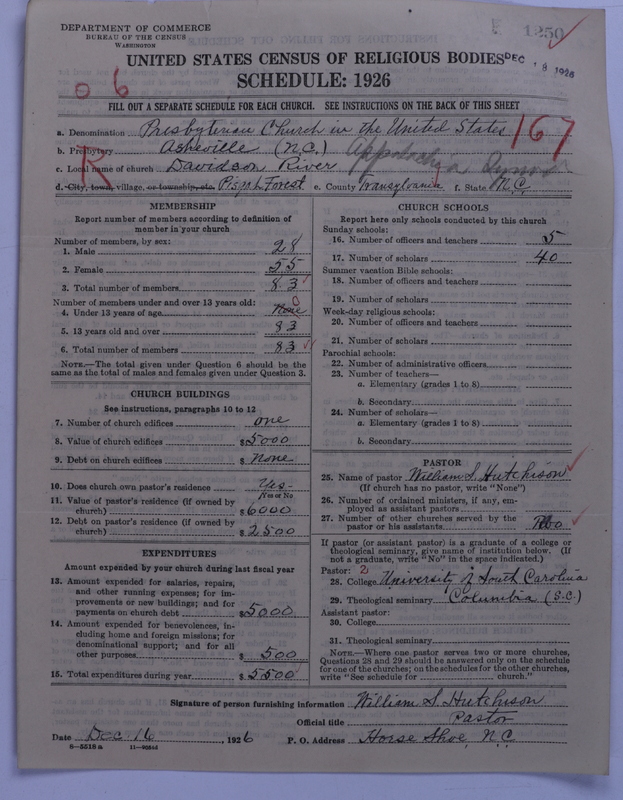 DEPARTMENT OF COMMERCE
BUREAU OF THE CENSUS
WASHINGTON
1250
UNITED STATES CENSUS OF RELIGIOUS BODIES
DEC 18 1926
SCHEDULE: 1926
0 6
FILL OUT A SEPARATE SCHEDULE FOR EACH CHURCH. SEE INSTRUCTIONS ON THE BACK OF THIS SHEET
a. Denomination Presbyterian Church in the United States
167
b. Presbytery Asheville (N.C.) Appalachia Synod
R
c. Local name of church Davidson River
d. City, town, village, or township, etc. Pisgah Forest e. County Transylvania f. State N.C.
MEMBERSHIP
Report number of members according to definition of
member in your church
Number of members, by sex:
1. Male 28
2. Female 55
3. Total number of members 83
Number of members under and over 13 years old:
4. Under 13 years of age None 0
5. 13 years old and over 83
6. Total number of members 83
NOTE.—The total given under Question 6 should be
same as the total of males and females given under Question 3.
CHURCH BUILDINGS
See instructions, paragraphs 10 to 12
7. Number of church edifices one
8. Value of church edifices $5000
9. Debt on church edifices $ None
10. Does church own pastor's residence Yes-
Yes or No
11. Value of pastor's residence (if owned by
church) $6000
12. Debt on pastor's residence (if owned by
church) $2500
EXPENDITURES
Amount expended by your church during last fiscal year
13. Amount expended for salaries, repairs,
and other running expenses; for im-
provements or new buildings; and for
payments on church debt $5000
14. Amount expended for benevolences, in-
cluding home and foreign missions; for
denominational support; and for all
other purposes $ 500
15. Total expenditures during year $5500
CHURCH SCHOOLS
Report here only schools conducted by this church
Sunday schools:
16. Number of officers and teachers 5
17. Number of scholars 40
Summer vacation Bible schools:
18. Number of officers and teachers
19. Number of scholars
Week-day religious schools:
20. Number of officers and teachers
21. Number of scholars
Parochial schools:
22. Number of administrative officers
23. Number of teachers—
a. Elementary (grades 1 to 8)
b. Secondary
24. Number of scholars—
a. Elementary (grades 1 to 8)
b. Secondary
PASTOR
25. Name of pastor William S. Hutchison
(If church has no pastor, write "None")
26. Number of ordained ministers, if any, em-
ployed as assistant pastors
27. Number of other churches served by the
pastor or his assistants
If pastor (or assistant pastor) is a graduate of a college or
theological seminary, give name of institution below. (If
not a graduate, write "No" in the space indicated.)
Pastor: 2
28. College University of South Carolina
29. Theological seminary Columbia (S.C.)
Assistant pastor:
30. College
31. Theological seminary
NOTE.—Where one pastor serves two or more churches,
Questions 28 and 29 should be answered only on the schedule
for one of the churches; on the schedules for the other churches,
write "See schedule for church."
Signature of person furnishing information William S. Hutchison
Official title Pastor
Date Dec. 16, 1926 P. O. Address Horse Shoe, N.C.
8-5518a